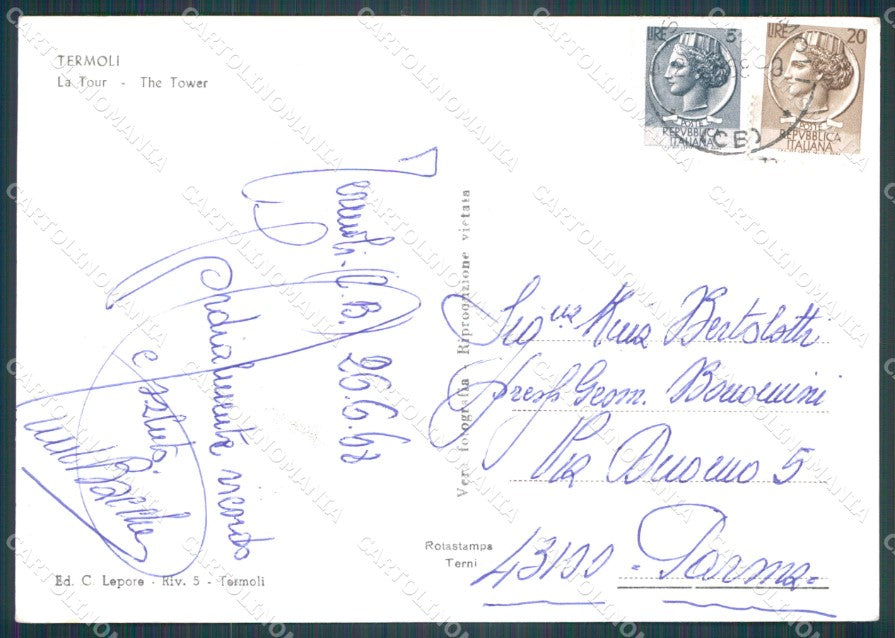 TERMOLI
La Tour - The Tower
LIRE 5
POSTE
REPVBBLICA
ITALIANA
LIRE 20
POSTE
REPVBBLICA
ITALIANA
(CB)
Termoli
26.6.68
Cordialmente ricordo
e saluta
Vera fotografia - Riproduzione vietata
Sig.na Bertolotti
presso Geom. Bonomini
Via Duomo 5
43100 - Parma -
Rotastampa
Terni
Ed. C. Lepore - Riv. 5 - Termoli
CARTOLINOMANIA